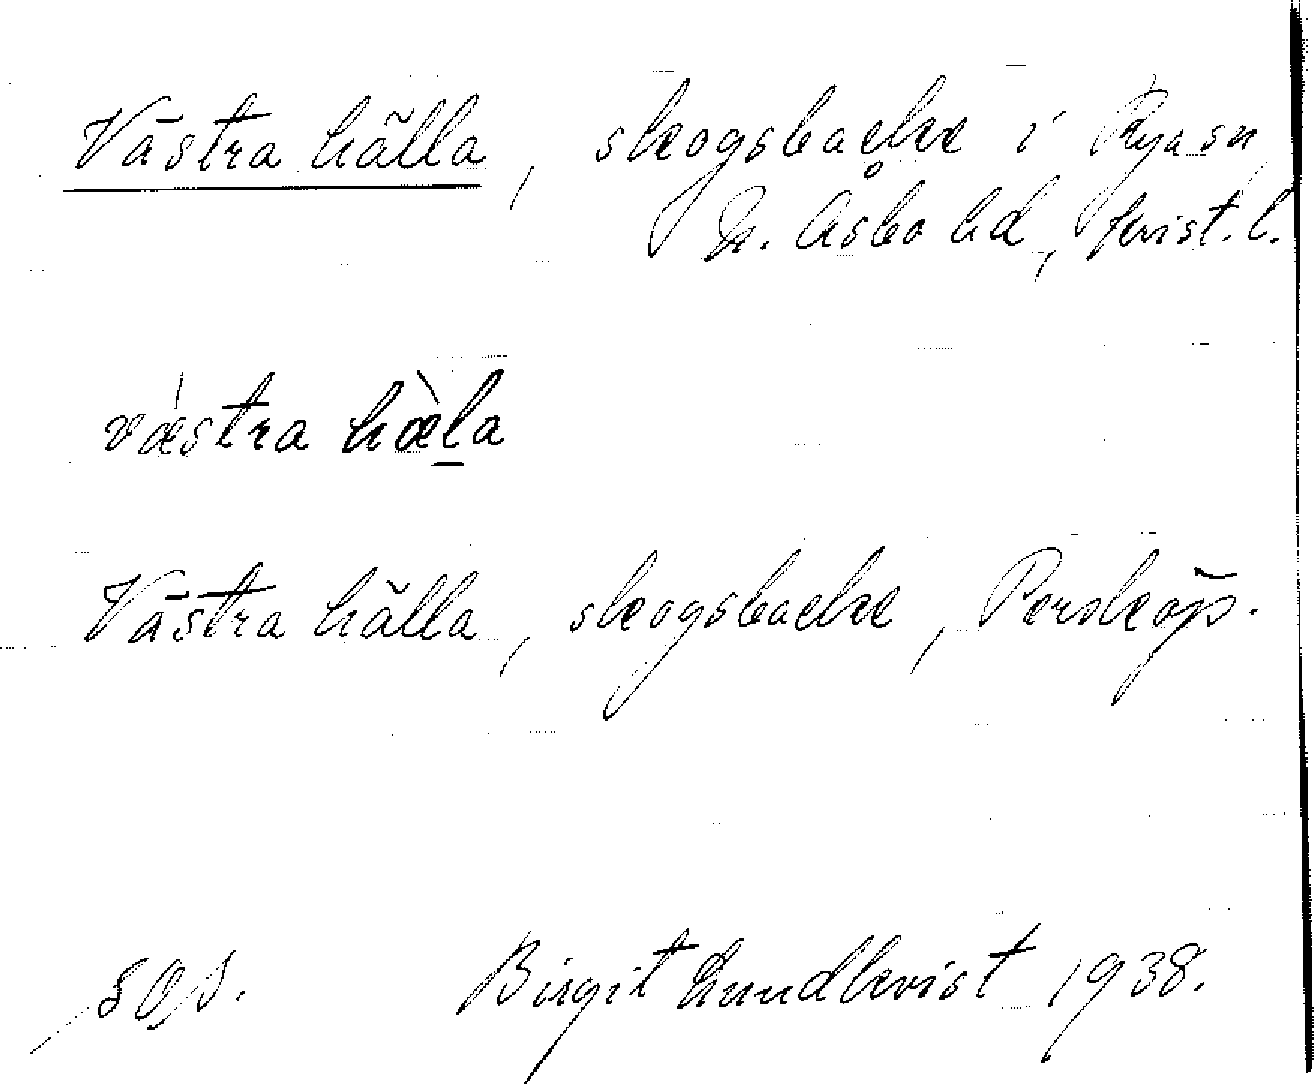 Västra hälla, skogsbacke i Rya sn
N. Åsbo hd, Krist. l.
västra hæ̀la
Västra hälla, skogsbacke, Persköp.
Birgit Lundkvist 1938.